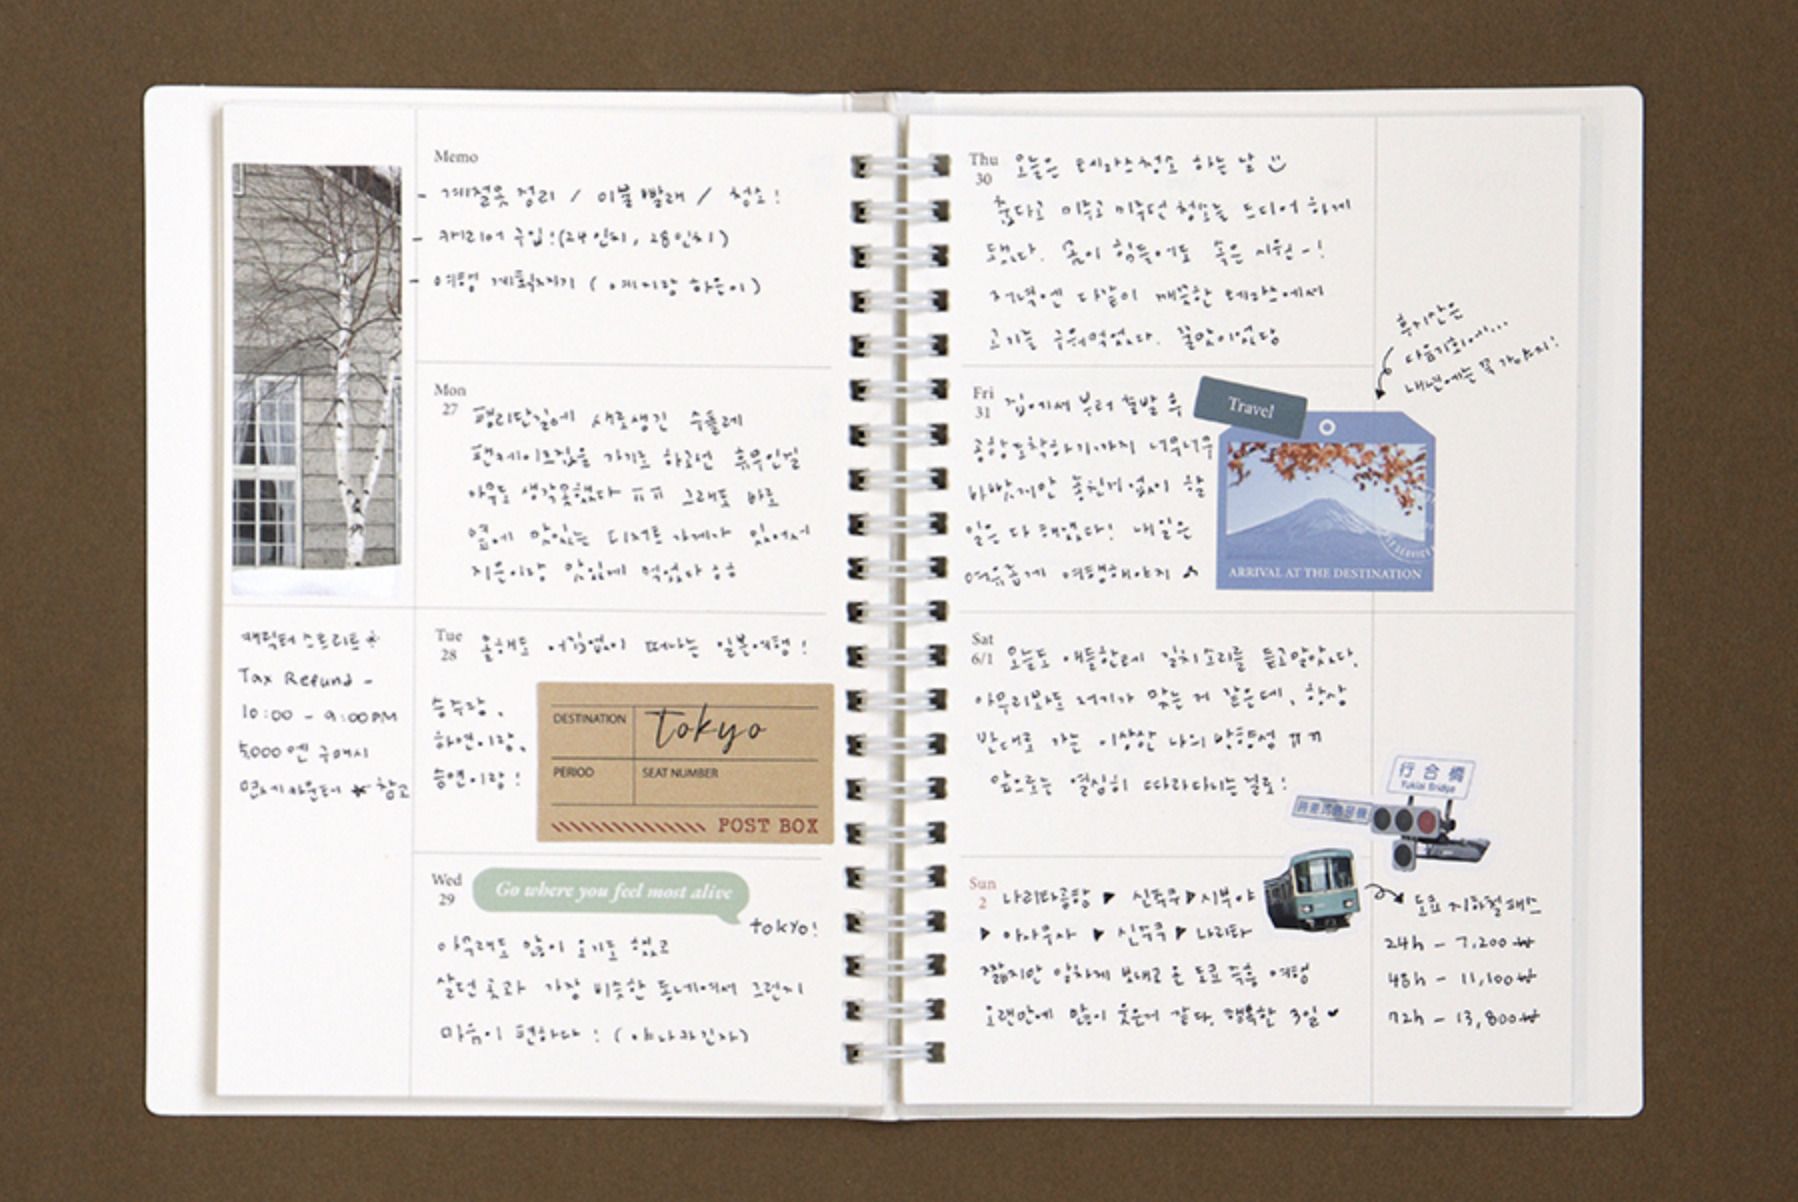 Memo
- 계절옷 정리 / 이불빨래 / 청소!
- 캐리어 구입!(24인치, 28인치)
- 여행 계획짜기 ( 예지랑 하은이 )
Mon
27
평리단길에 새로생긴 수플레
팬케이크집을 가기로 하고선 휴무인걸
아무도 생각못했다 ㅠㅠ 그래도 바로
옆에 맛있는 디저트 가게가 있어서
지은이랑 맛있게 먹었다 ㅎㅎ
캐릭터 스트리트
Tax Refund -
10:00 - 9:00PM
5,000엔 구매시
면세카운터 참고
Tue
28
올해도 어김없이 떠나는 일본여행!
승주랑,
하연이랑,
승연이랑!
DESTINATION
tokyo
PERIOD
SEAT NUMBER
POST BOX
Wed
29
Go where you feel most alive
tokyo!
아무래도 많이 오기도 했고
살던 곳과 가장 비슷한 동네여서 그런지
마음이 편하다 : (
Thu
30
오늘은 테라스청소 하는 날
춥다고 미루고 미루던 청소를 드디어 하게
됐다. 몸이 힘들어도 속은 시원~!
저녁엔 다같이 깨끗한 테라스에서
고기를 구워먹었다. 꿀맛이었당
후지산은
다음기회에...
내년에는 꼭 가야지!
Fri
31
집에서 부터 출발 후
공항도착하기까지 너무너무
바빴지만 놓친거 없이 할
일은 다 해냈다! 내일은
여유롭게 여행해야지
Travel
ARRIVAL AT THE DESTINATION
Sat
6/1
오늘도 애들한테 길치소리를 듣고말았다.
아무리봐도 저기가 맞는 거 같은데, 항상
반대로 가는 이상한 나의 방향성 ㅠㅠ
앞으로는 열심히 따라다니는걸로!
行合橋
Yukiai Bridge
Sun
2
나리타공항 ▶ 신주쿠 ▶ 시부야
▶ 아사쿠사 ▶ 신주쿠 ▶ 나리타
짧지만 알차게 보내고 온 도쿄 즉흥 여행
오랜만에 많이 웃은거 같다. 행복한 3일 ♥
도쿄 지하철패스
24h - 7,200₩
48h - 11,100₩
72h - 13,800₩